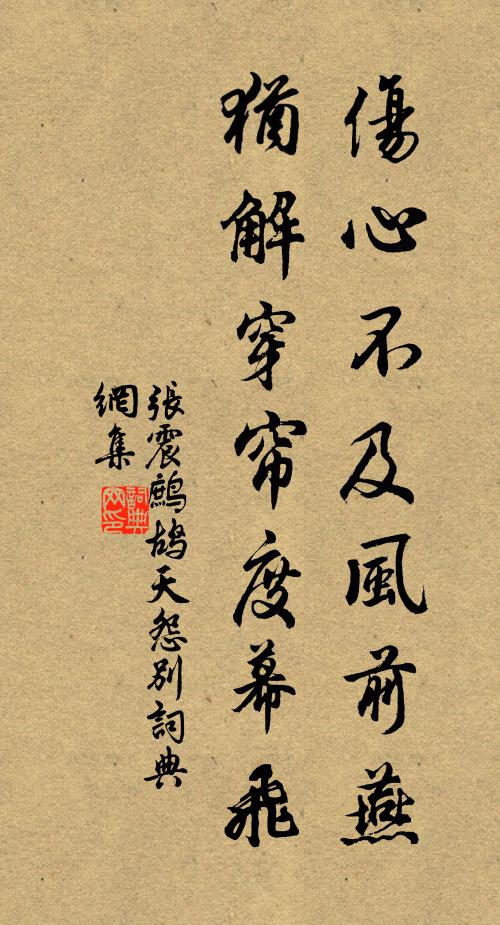 傷心不及風前燕
猶解穿帘度幕飛
張震鷓鴣天怨別詞典
網集
詞典
网印